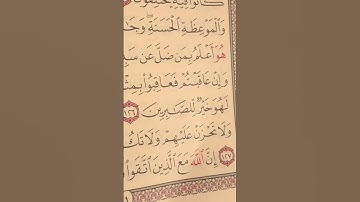 كَانُوا۟ فِيهِ يَخْتَلِفُونَ
وَٱلْمَوْعِظَةِ ٱلْحَسَنَةِ ۖ وَجَـ
هُوَ أَعْلَمُ بِمَن ضَلَّ عَن سَبِـ
وَإِنْ عَاقَبْتُمْ فَعَاقِبُوا۟ بِمِثْـ
لَهُوَ خَيْرٌ لِّلصَّـٰبِرِينَ ١٢٦
وَلَا تَحْزَنْ عَلَيْهِمْ وَلَا تَكُ
١٢٧ إِنَّ ٱللَّهَ مَعَ ٱلَّذِينَ ٱتَّقَوا۟